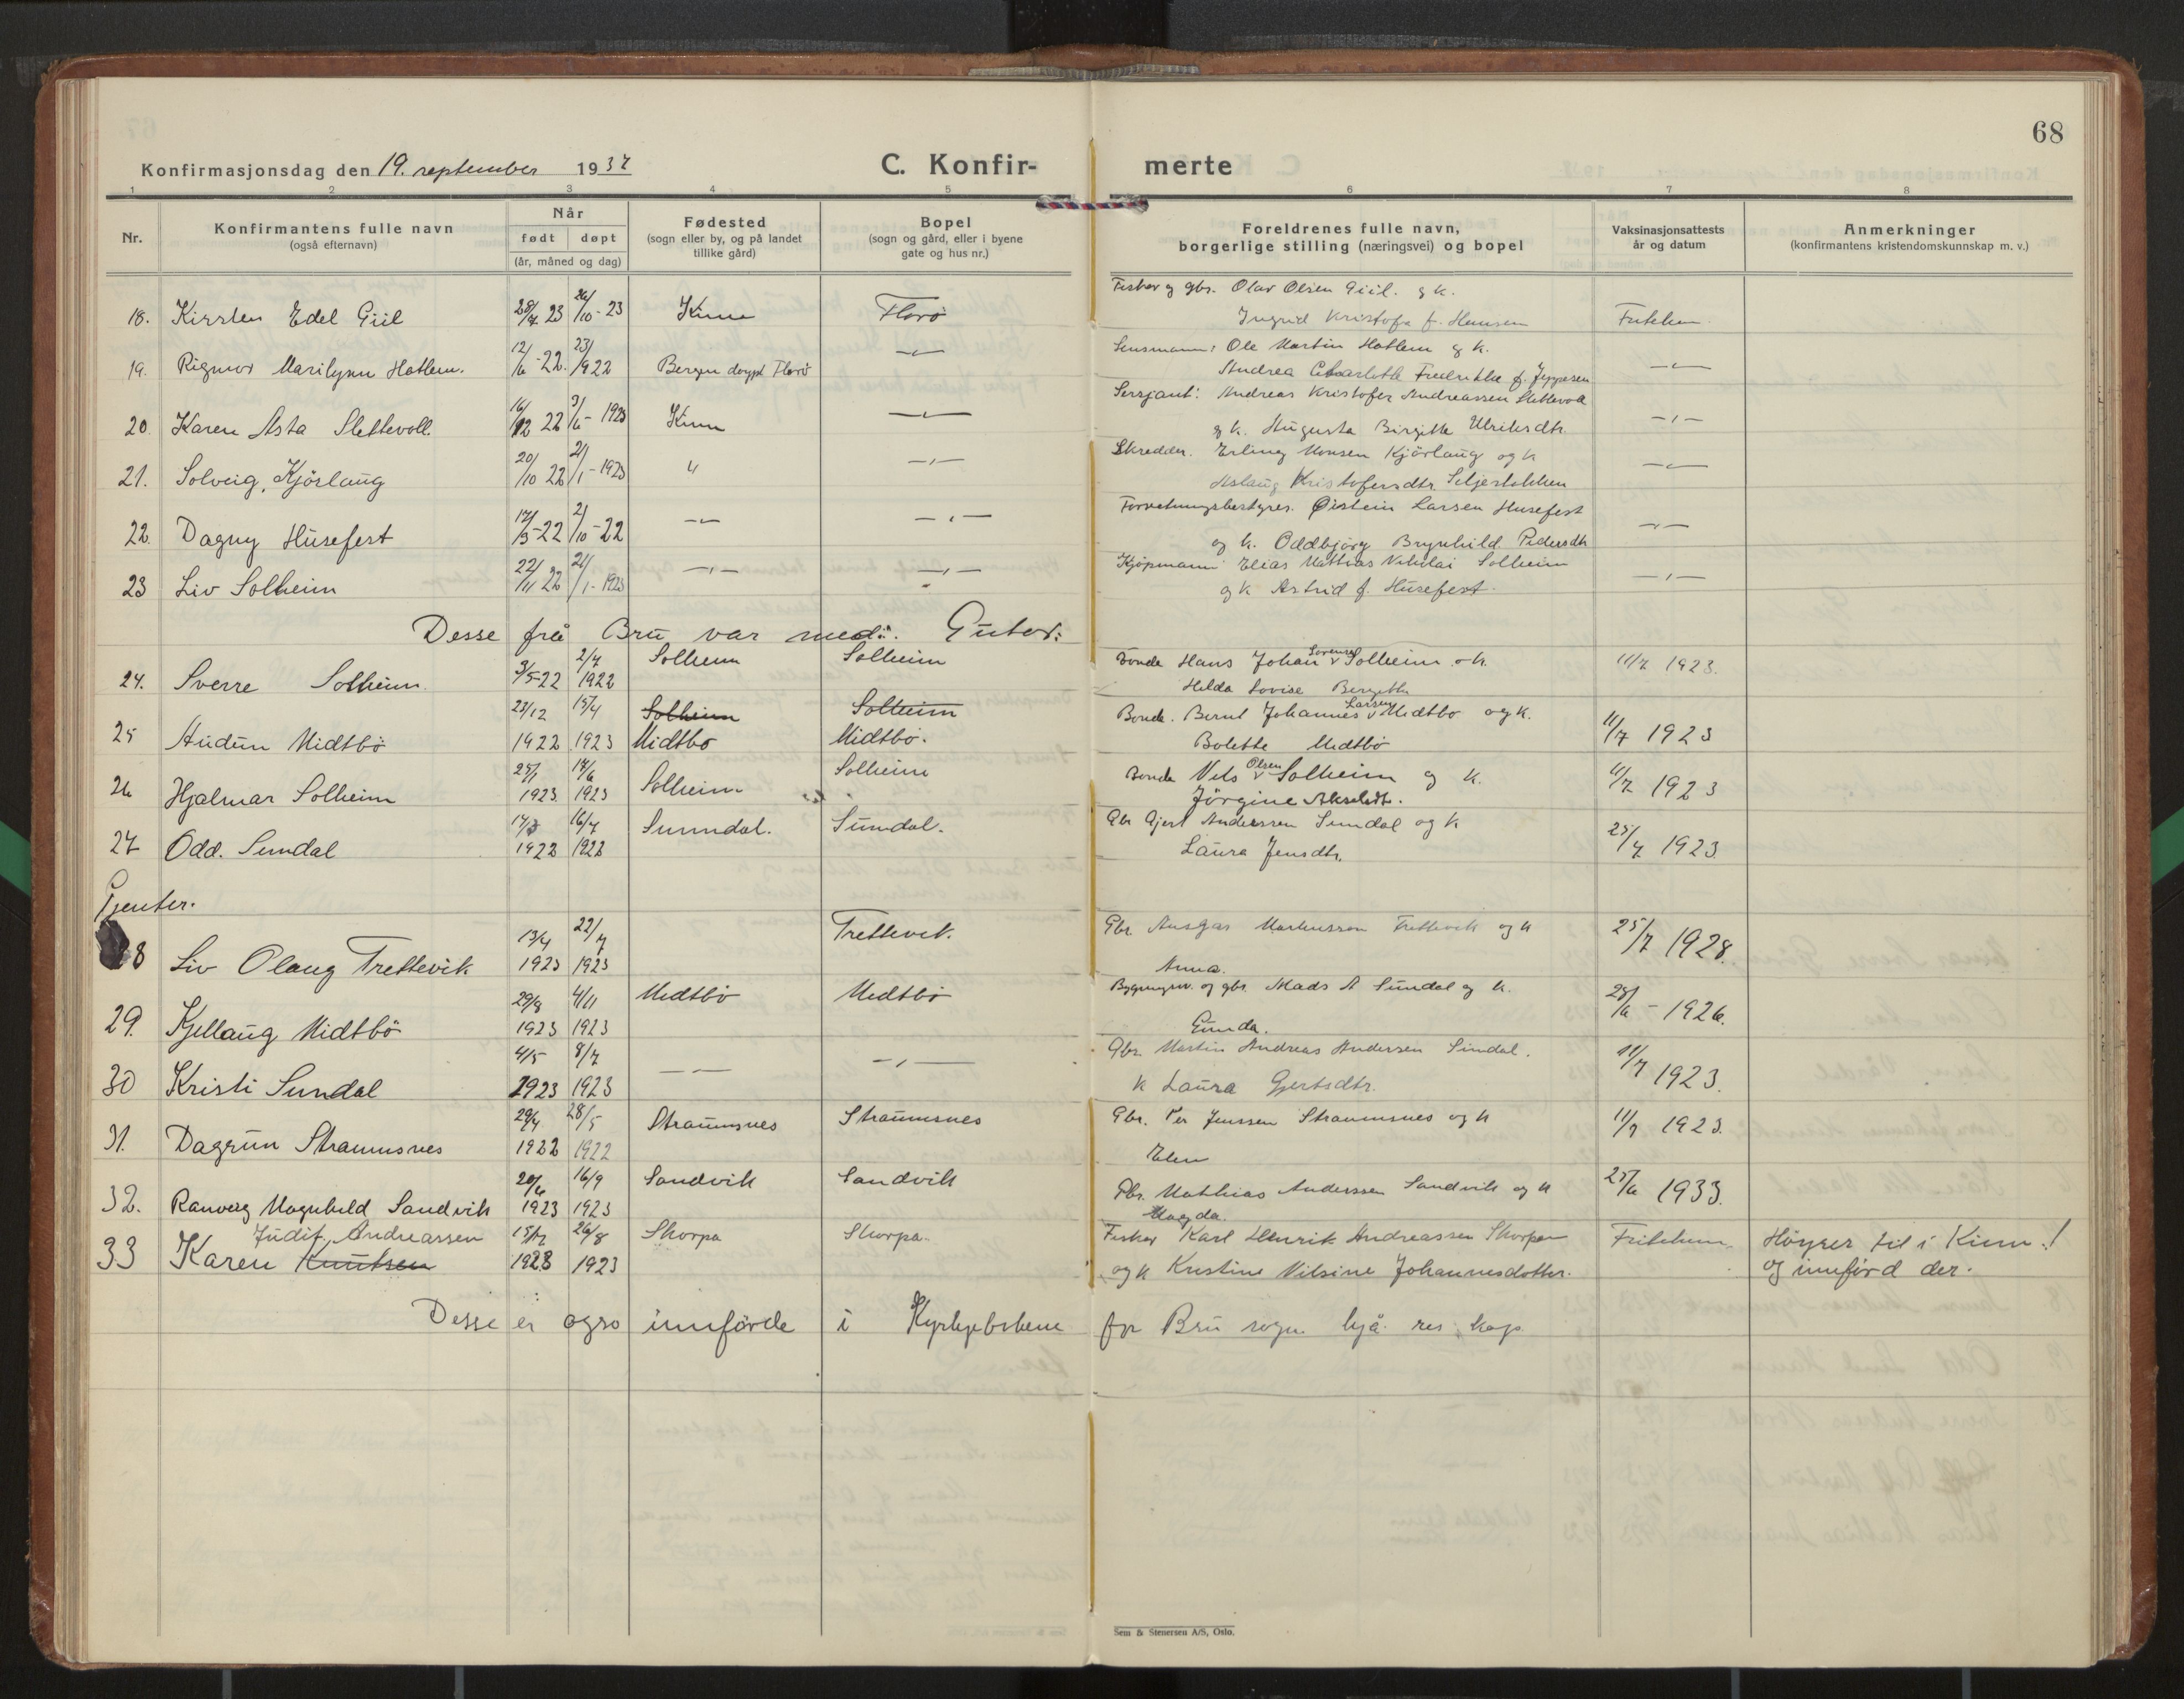 68
Konfirmasjonsdag den 19. september 1937
C. Konfir-merte
1 2 3 4 5 6 7 8
Nr.
Konfirmantens fulle navn
(også efternavn)
Når
født døpt
(år, måned og dag)
Fødested
(sogn eller by, og på landet
tillike gård)
Bopel
(sogn og gård, eller i byene
gate og hus nr.)
Foreldrenes fulle navn,
borgerlige stilling (næringsvei) og bopel
Vaksinasjonsattests
år og datum
Anmerkninger
(konfirmantens kristendomskunnskap m. v.)
18. Kirsten Edel Giil 28/7 23 26/10-23 Kinn Florö Fisker og gbr. Olav Olsen Giil. g k.
Ingrid Kristofa f. Hansen Fritthen.
19. Rigmor Marilynn Hatlem. 12/6-22. 23/9 22 Bergen döypt Florö —"— Lensmann: Ole Martin Hatlem og k.
Andrea Charlotte Fredrikke f. Jeppesen —"—
20. Karen Asta Slettevoll. 16/12 22 3/6-1923 Kinn —"— Sersjant: Andreas Kristofer Andreassen Slettevoll
og k. Augusta Birgitte Ulriksdtr. —"—
21. Solveig, Kjörlaug 20/10 22 21/1-1923 " —"— Skredder. Erling Monsen Kjörlaug og k
Aslaug Kristofersdtr. Seljestokken —"—
22. Dagny Husefest 17/5-22 2/10-22 —"— —"— Forretningsbestyrer. Øistein Larsen Husefest
og k. Oddbjörg Brynhild Pedersdtr —"—
23 Liv Solheim 22/11 22 21/1-1923 —"— —"— Kjöpmann Elias Mathias Nikolai Solheim
og k Astrid f. Husefest. —"—
Desse frå Bru var med:. Guter:
24. Sverre Solheim. 3/5-22 2/7 1922 Solheim Solheim Bonde Hans Johan Sörensen Solheim o k.
Hilda Lovise Bergitte 11/7 1923.
25 Audun Midtbö 23/12 1922 15/4 1923 Solheim Midtbö Solheim Midtbö. Bonde. Bernt Johannes Larsen Midtbö og k.
Bolette Midtbö 11/7 1923
26 Hjalmar Solheim 25/1 1923. 17/6 1923 Solheim Solheim Bonde Nils Olsen Solheim og k.
Jörgine Akseldtr. 11/7 1923
27 Odd. Sundal 17/3 1922 16/7 1922 Sunndal. Sundal. Gbr Gjert Anderssen Sundal og k
Laura Jensdtr. 25/7 1923.
Gjenter.
28 Liv Olaug Trettevik 13/4 1923 22/7 1923 Trettevik. Gbr. Ansgar Markussen Trettevik og k
Anna. 25/7 1928.
29. Kjellaug Midtbö 29/8 1923 4/11 1923 Midtbö Midtbö Bygningsm. og gbr. Mads A Sundal og k.
Gunda. 28/6-1926.
30 Kristi Sundal 4/5 1923 8/7 1923 —"— —"— Gbr. Martin Andreas Andersen Sundal.
k Laura Gjertsdtr. 11/7 1923.
31. Dagrun Straumsnes 29/4 1922 28/5 1922 Straumsnes Straumsnes Gbr. Per Jenssen Straumsnes og k
Elen 11/7 1923.
32. Ranveig Magnhild Sandvik 20/6 1923 16/9 1923 Sandvik Sandvik Gbr. Mathias Anderssen Sandvik og k
Magda. 25/6 1933.
33 Karen Judit, Andreassen Knutsen 15/7 1923 26/8 1923 Skorpa Skorpa. Fisker Karl Henrik Andreassen Skorpen
og k Kristine Nilsine Johannesdotter. Fritthen. Höyrer til i Kinn.!
og innförd der.
Desse er ogso innförde i Kyrkjebökene for Bru sogn hjå res. kap.
Sem & Stenersen A/S, Oslo.